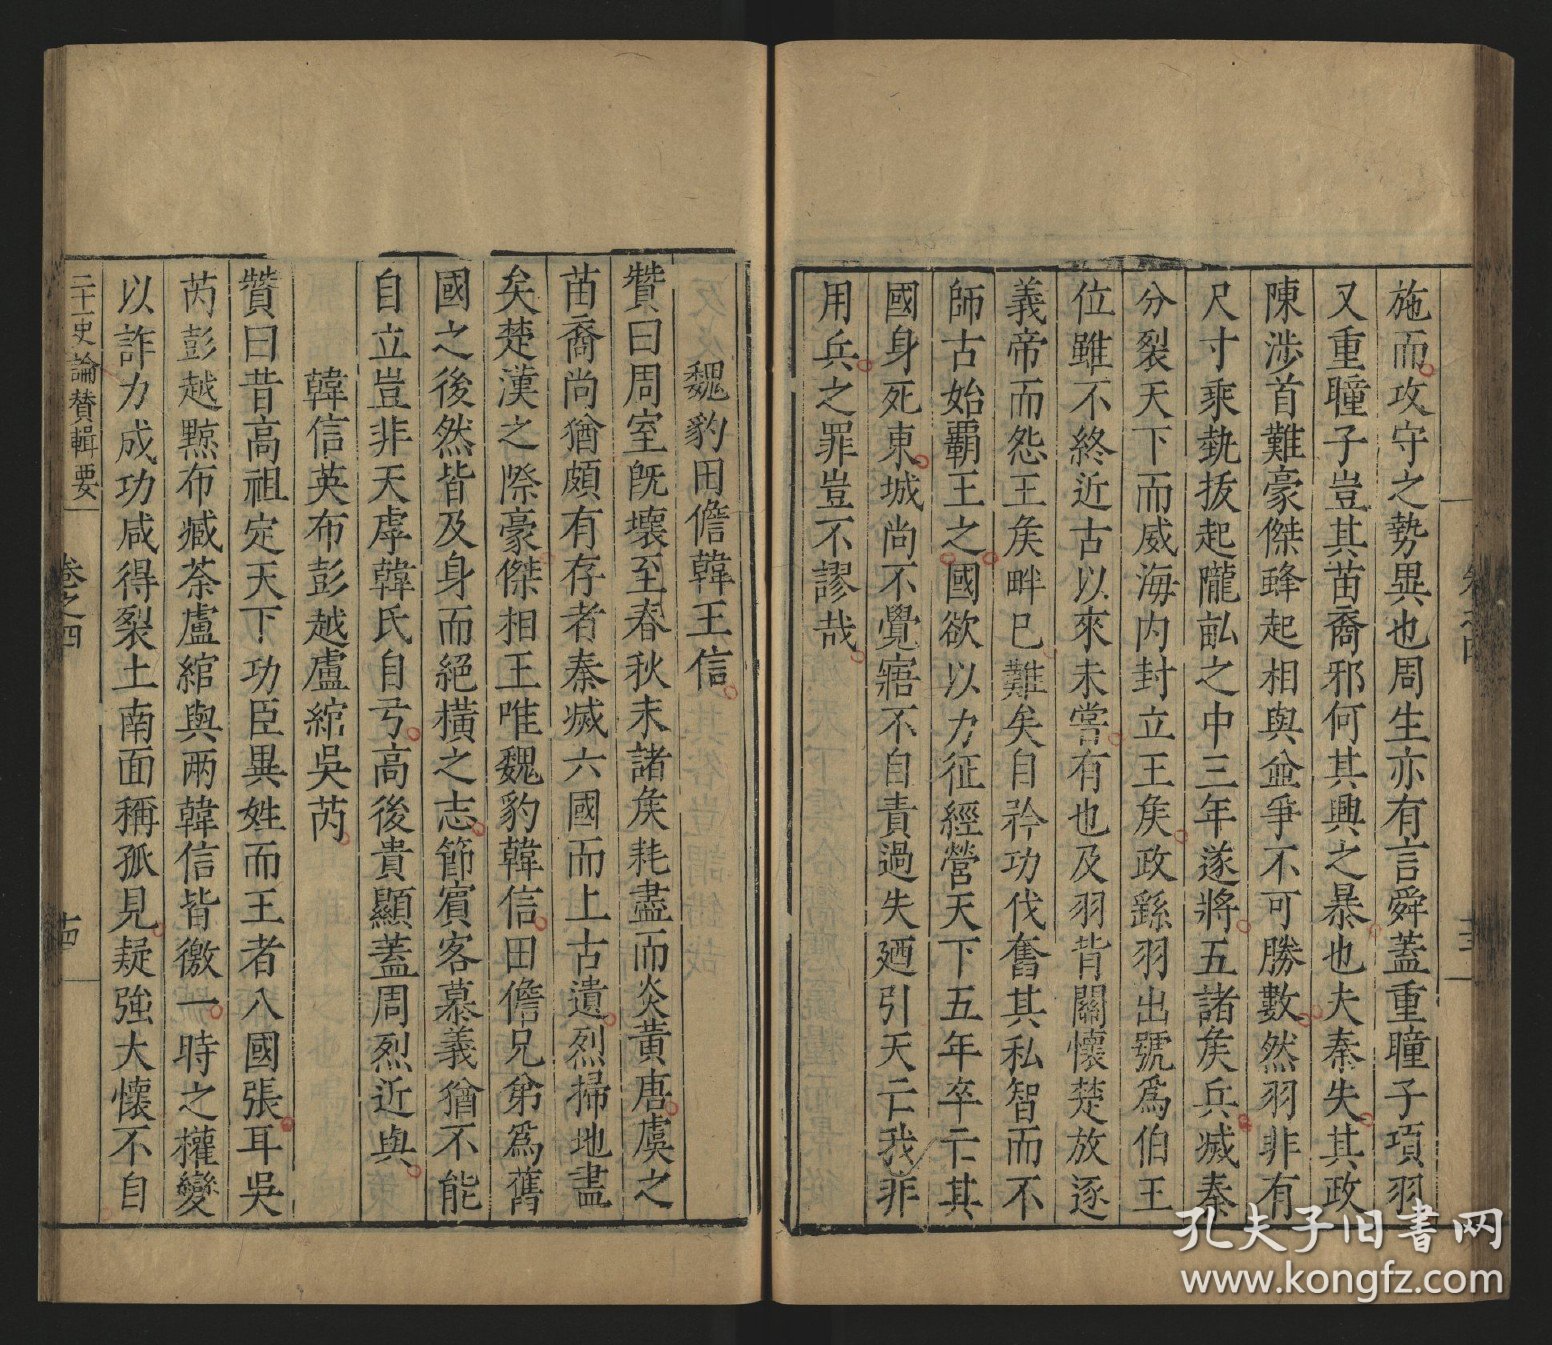 施而攻守之勢異也周生亦有言舜蓋重瞳子項羽
又重瞳子豈其苗裔邪何其興之暴也夫秦失其政
陳涉首難豪傑蜂起相與並爭不可勝數然羽非有
尺寸乘埶拔起隴畝之中三年遂將五諸矦兵滅秦
分裂天下而威海內封立王矦政繇羽出號爲伯王
位雖不終近古以來未嘗有也及羽背關懷楚放逐
義帝而怨王矦畔已難矣自矜功伐奮其私智而不
師古始霸王之國欲以力征經營天下五年卒亡其
國身死東城尚不覺寤不自責過失廼引天亡我非
用兵之罪豈不謬哉
卷之四
魏豹田儋韓王信
贊曰周室旣壞至春秋末諸矦耗盡而炎黃唐虞之
苗裔尚猶頗有存者秦滅六國而上古遺烈掃地盡
矣楚漢之際豪傑相王唯魏豹韓信田儋兄弟爲舊
國之後然皆及身而絕橫之志節賓客慕義猶不能
自立豈非天虖韓氏自弓高後貴顯蓋周烈近與
韓信英布彭越盧綰吳芮
贊曰昔高祖定天下功臣異姓而王者八國張耳吳
芮彭越黥布臧荼盧綰與兩韓信皆徼一時之權變
以詐力成功咸得裂土南面稱孤見疑強大懷不自
二十一史論贊輯要
卷之四
十四
孔夫子旧书网
www.kongfz.com